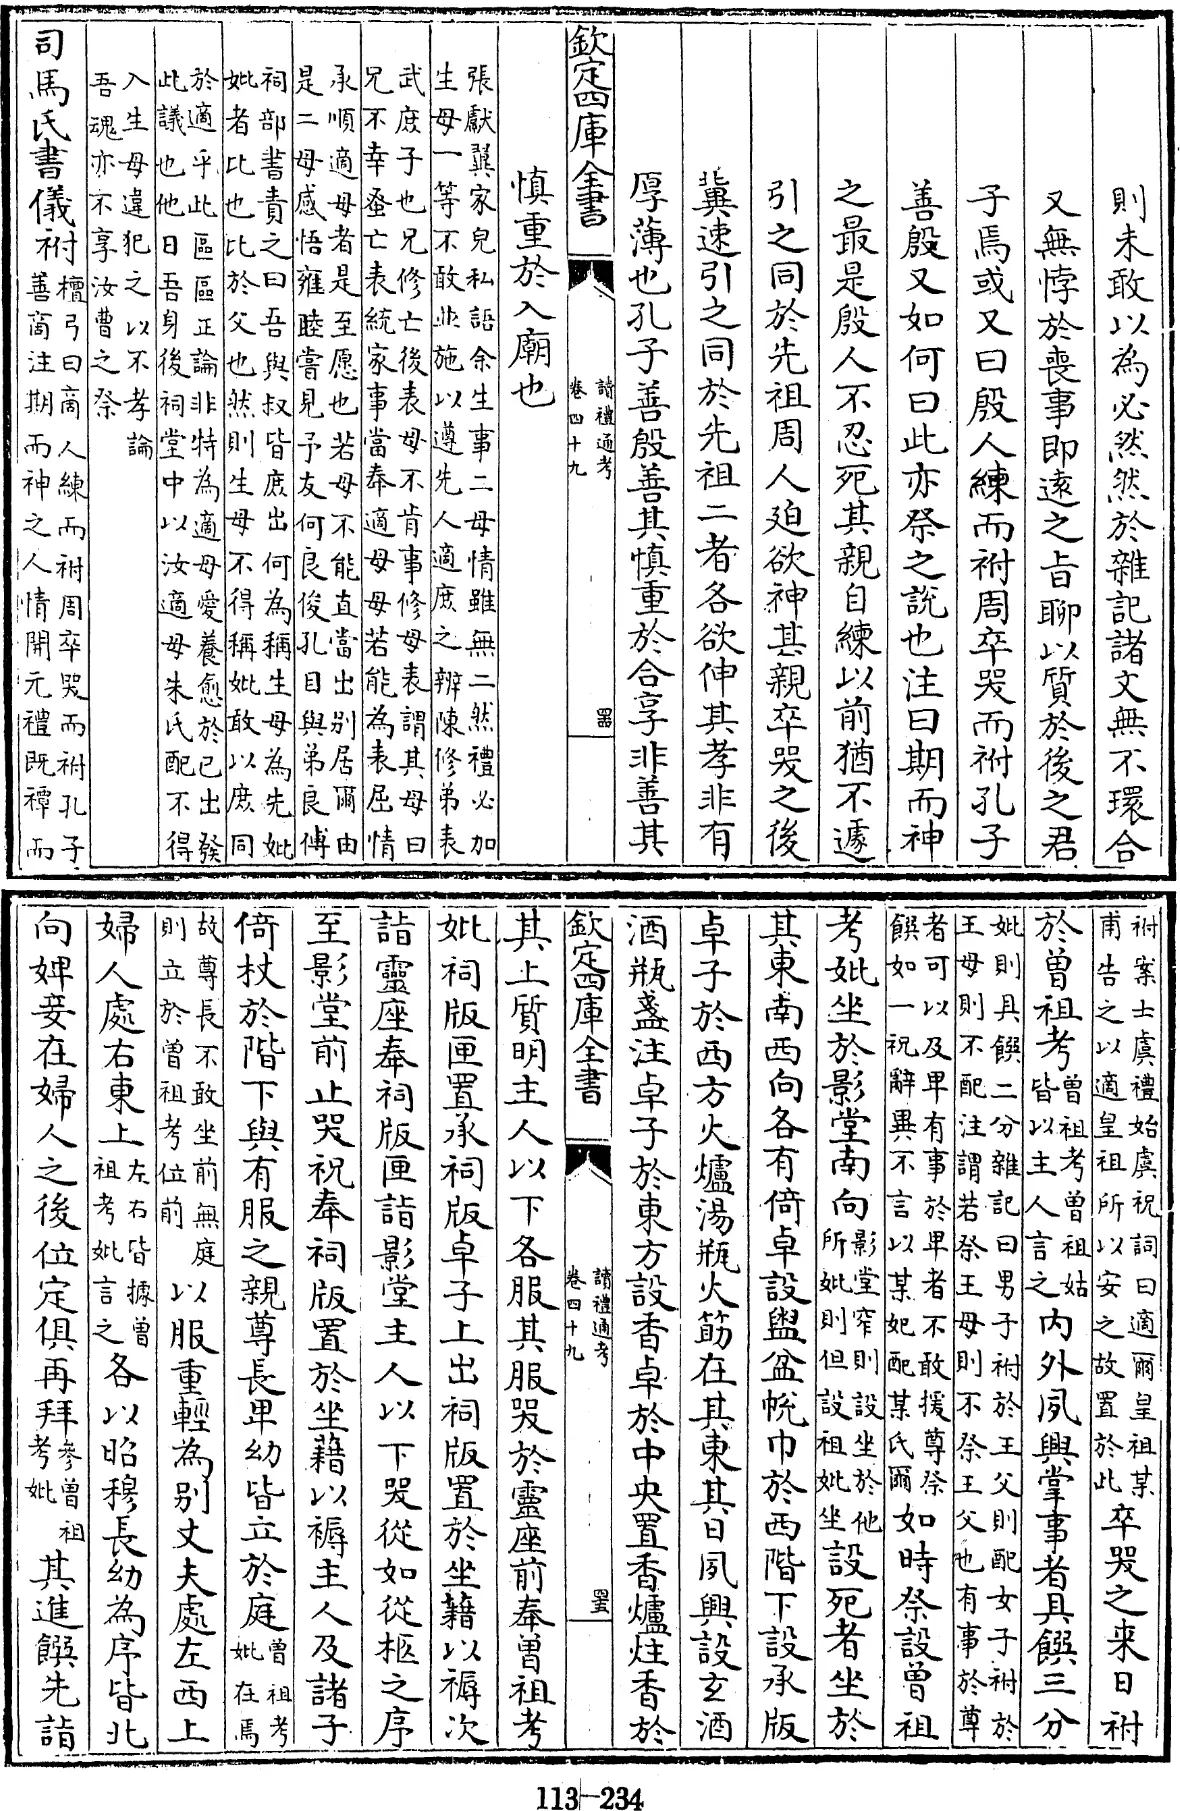 則未敢以為必然然於雜記諸文無不環合
又無悖於喪事即逺之㫖聊以質於後之君
子焉或又曰殷人練而祔周卒哭而祔孔子
善殷又如何曰此亦祭之說也注曰期而神
之最是殷人不忍死其親自練以前猶不遽
引之同於先祖周人廹欲神其親卒哭之後
冀速引之同於先祖二者各欲伸其孝非有
厚薄也孔子善殷善其慎重於合享非善其
欽定四庫全書
讀禮通考
卷四十九
慎重於入廟也
張獻翼家兒私語余生事二母情雖無二然禮必加
生母一等不敢並施以遵先人適庶之辨陳修弟表
武庶子也兄修亡後表母不肯事修母表謂其母曰
兄不幸蚤亡表統家事當奉適母母若能為表屈情
承順適母者是至愿也若母不能直當出别居爾由
是二母感悟雍睦嘗見予友何良俊孔目與弟良傅
祠部書責之曰吾與叔皆庶出何為稱生母為先妣
妣者比也比於父也然則生母不得稱妣敢以庶同
於適乎此區區正論非特為適母愛養愈於已出發
此議也他日吾身後祠堂中以汝適母朱氏配不得
入生母違犯之以不孝論
吾魂亦不享汝曹之祭
司馬氏書儀祔檀弓曰商人練而祔周卒哭而祔孔子善商注期而神之人情開元禮既禫而
祔案士虞禮始虞祝詞曰適爾皇祖某甫告之以適皇祖所以安之故置於此卒哭之来日祔
於曾祖考曾祖考曾祖姑皆以主人言之内外夙興掌事者具饌三分
妣則具饌二分雜記曰男子祔於王父則配女子祔於
王母則不配注謂若祭王母則不祭王父也有事於尊
者可以及卑有事於卑者不敢援尊祭
饌如一祝辭異不言以某妃配某氏爾如時祭設曾祖
考妣坐於影堂南向影堂窄則設坐於他所妣則但設祖妣坐設死者坐於
其東南西向各有倚卓設盥盆帨巾於西階下設承版
卓子於西方火爐湯瓶火筯在其東其日夙興設玄酒
酒瓶盞注卓子於東方設香卓於中央置香爐炷香於
欽定四庫全書
讀禮通考
卷四十九
其上質明主人以下各服其服哭於靈座前奉曾祖考
妣祠版匣置承祠版卓子上出祠版置於坐藉以褥次
詣靈座奉祠版匣詣影堂主人以下哭從如從柩之序
至影堂前止哭祝奉祠版置於坐藉以褥主人及諸子
倚杖於階下與有服之親尊長卑幼皆立於庭曾祖考妣在焉
故尊長不敢坐前無庭則立於曾祖考位前以服重輕為别丈夫處左西上
婦人處右東上左右皆據曾祖考妣言之各以昭穆長幼為序皆北
向婢妾在婦人之後位定俱再拜參曾祖考妣其進饌先詣
113-234